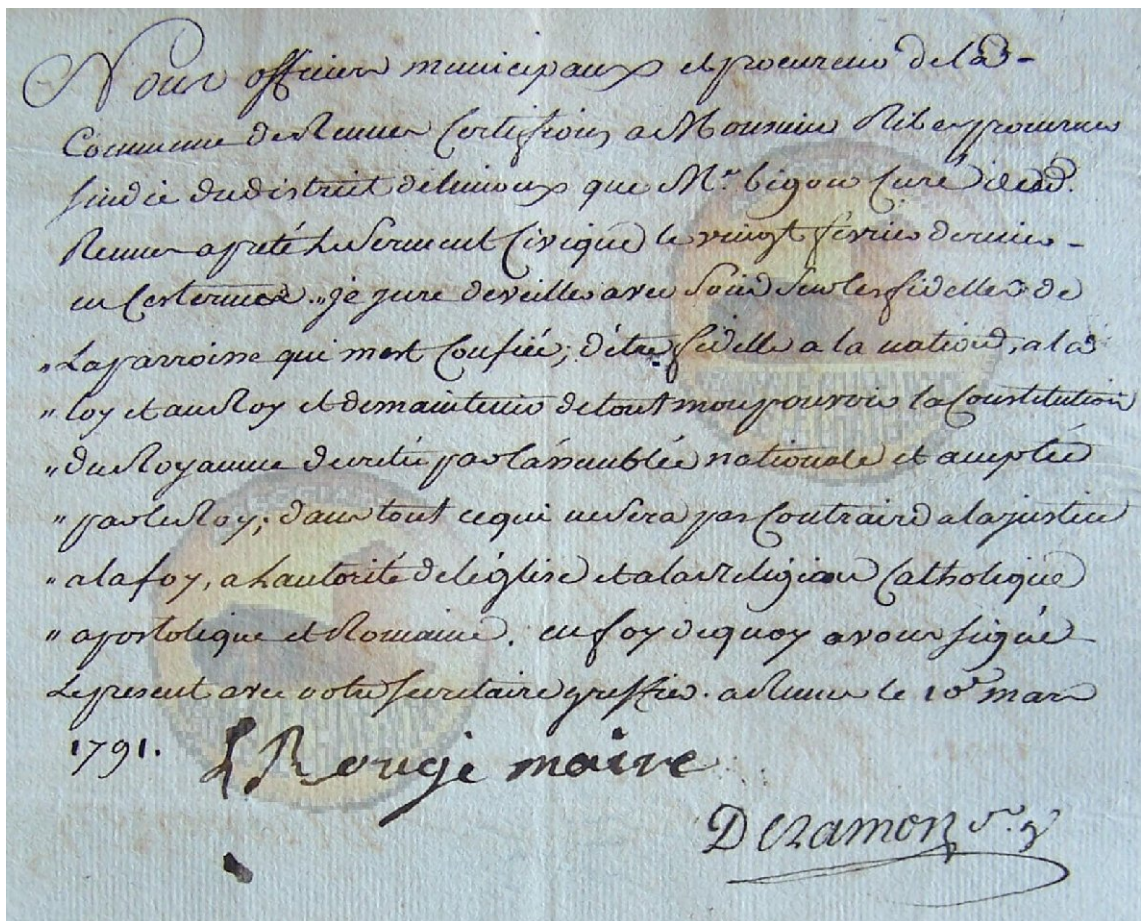 Nous officiers municipaux et procureur de la
Commune de Rennes Certifions a Monsieur Ribes procureur
sindic du district de limoux que Mr. bigou Curé dud.
Rennes a preté Le Serment Civique le vingt fevrier dernier
en Ces termes „ je jure de veiller avec Soin Sur les fidelles de
„ La parroisse qui m'est Confiée; d'être fidelle a la nation, a la
„ loy et au Roy et de maintenir de tout mon pouvoir la Constitution
„ du Royaume decretée par L'assemblée nationale et acceptée
„ par le Roy; dans tout ce qui ne Sera pas Contraire a la justice
„ a la foy, a L'autorité de l'église et a la Religion Catholique
„ apostolique et Romaine. en foy de quoy avons signé
Le present avec notre secretaire greffier. a Rennes le 10e mars
1791.
Rouge maire
Deramon